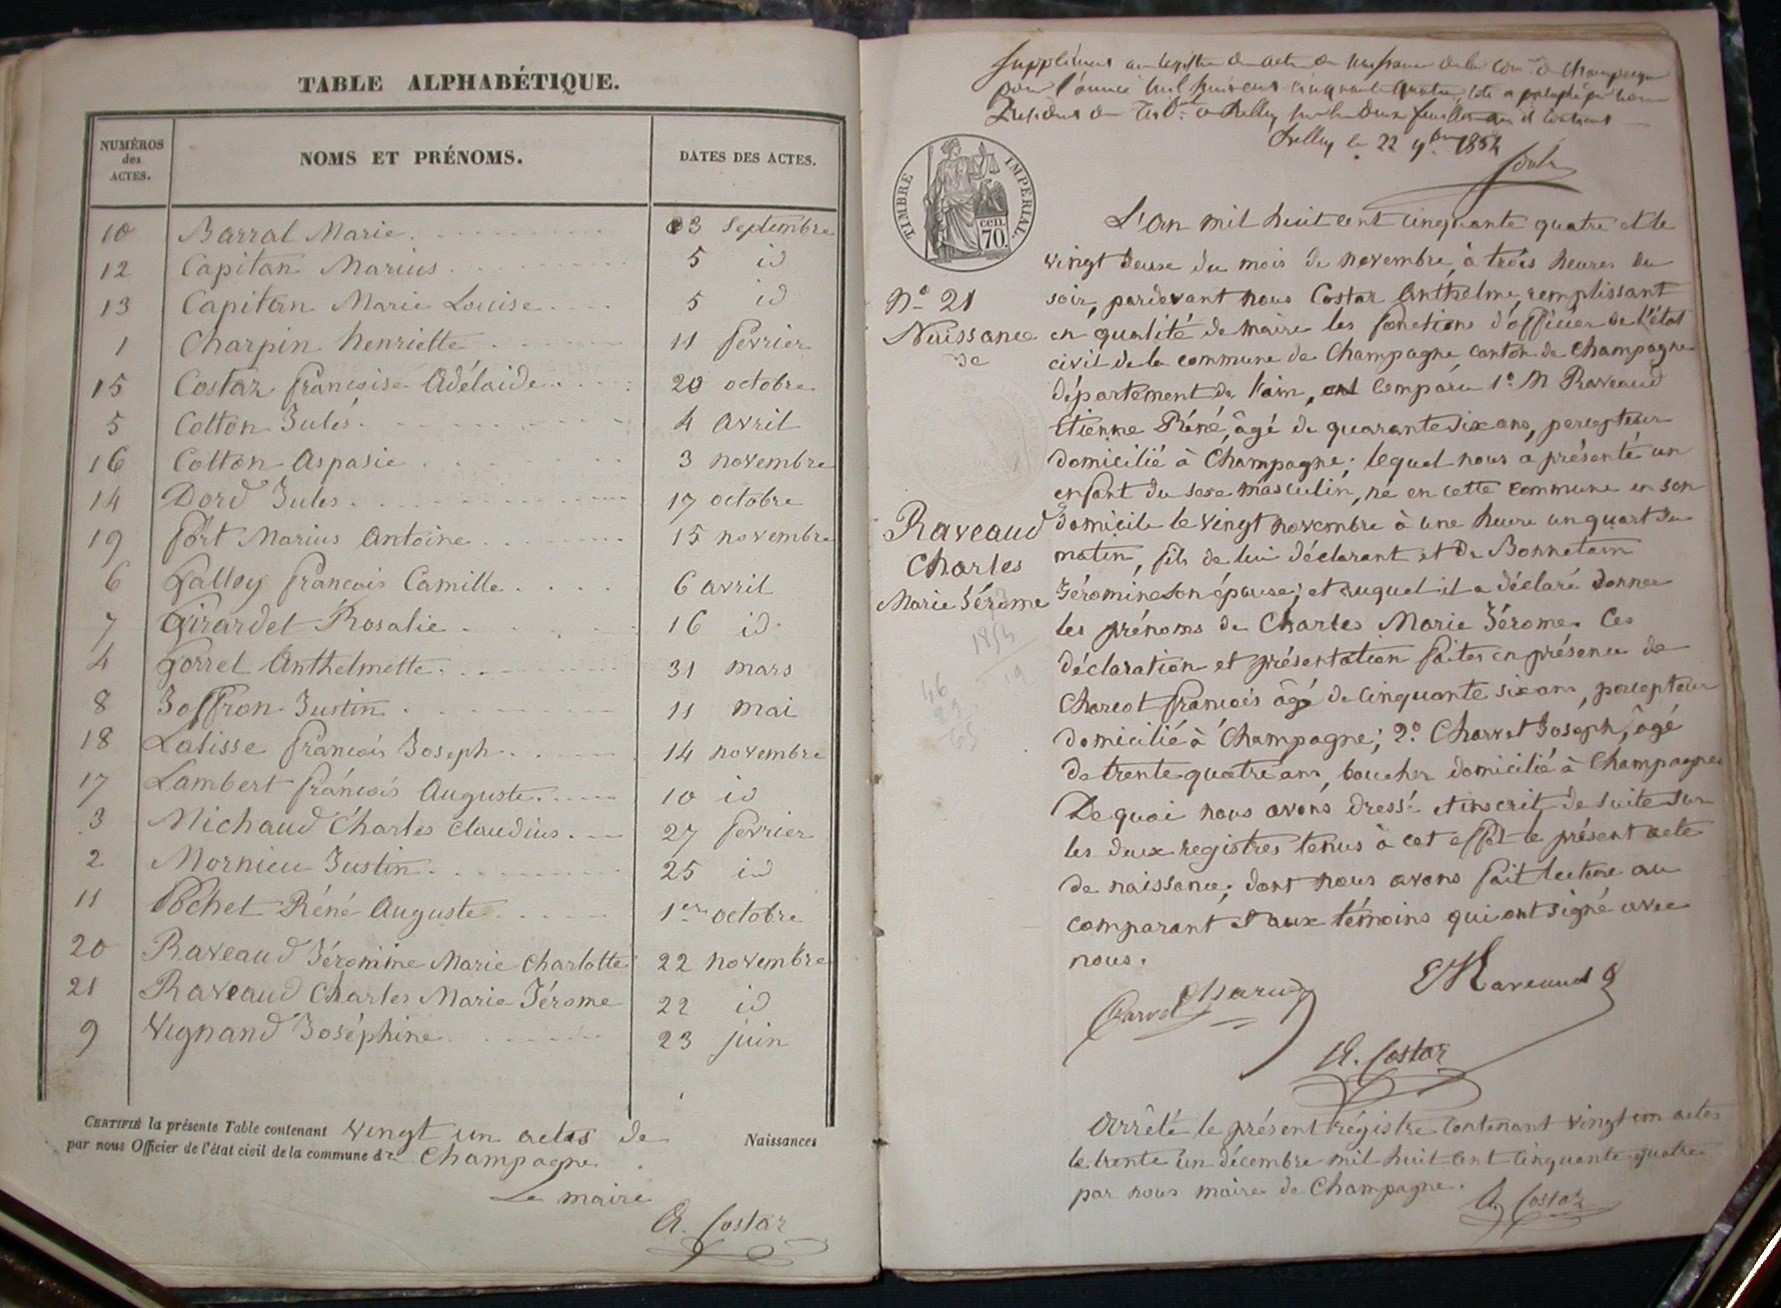 TABLE ALPHABÉTIQUE.
NUMÉROS des ACTES. NOMS ET PRÉNOMS. DATES DES ACTES.
10 Barral Marie 3 Septembre
12 Capitan Marius 5 id
13 Capitan Marie Louise 5 id
1 Charpin henriette 11 fevrier
15 Costaz françoise Adélaide 20 octobre
5 Cotton Jules 4 avril
16 Cotton Aspasie 3 novembre
14 Dord Jules 17 octobre
19 fort Marius Antoine 15 novembre
6 Galloy francois Camille 6 avril
7 Girardet Rosalie 16 id
4 Gorrel Anthelmette 31 mars
8 Joffron Justin 11 mai
18 Lalisse francois Joseph 14 novembre
17 Lambert francois Auguste 10 id
3 Michaud Charles Claudius 27 fevrier
2 Mornieu Justin 25 id
11 Pochet Réné Auguste 1er octobre
20 Raveaud Jéromine Marie Charlotte 22 novembre
21 Raveaud Charles Marie Jérome 22 id
9 Vignand Joséphine 23 juin
CERTIFIÉ la présente Table contenant vingt un actes de Naissances
par nous Officier de l'état civil de la commune de Champagne
Le maire
A. Costaz
pour l'année mil huit cent cinquante quatre
le 22 9bre 1854
TIMBRE IMPÉRIAL.
cen. 70.
N° 21
Naissance
de
Raveaud
Charles
Marie Jérome
1854
L'an mil huit cent cinquante quatre et le
vingt deux du mois de novembre, à trois heures du
soir, pardevant nous Costaz Anthelme, remplissant
en qualité de maire les fonctions d'officier de l'état
civil de la commune de Champagne canton de Champagne
département de l'ain, est comparu 1° M Raveaud
Etienne Réné, âgé de quarante six ans, percepteur
domicilié à Champagne; lequel nous a présenté un
enfant du sexe masculin, né en cette commune en son
domicile le vingt novembre à une heure un quart du
matin, fils de lui déclarant et de Bonnetain
Jéromine son épouse; et auquel il a déclaré donner
les prénoms de Charles Marie Jérome. Ces
déclaration et présentation faites en présence de
Charcot francois âgé de cinquante six ans, percepteur
domicilié à Champagne; 2° Charvet Joseph, âgé
de trente quatre ans, boucher domicilié à Champagne
De quoi nous avons dressé et inscrit de suite sur
les deux registres tenus à cet effet le présent acte
de naissance; dont nous avons fait lecture au
comparant et aux témoins qui ont signé avec
nous.
Charvet
E R Raveaud
A. Costaz
Arrêté le présent régistre contenant vingt un actes
le trente un décembre mil huit cent cinquante quatre
par nous maire de Champagne.
A. Costaz